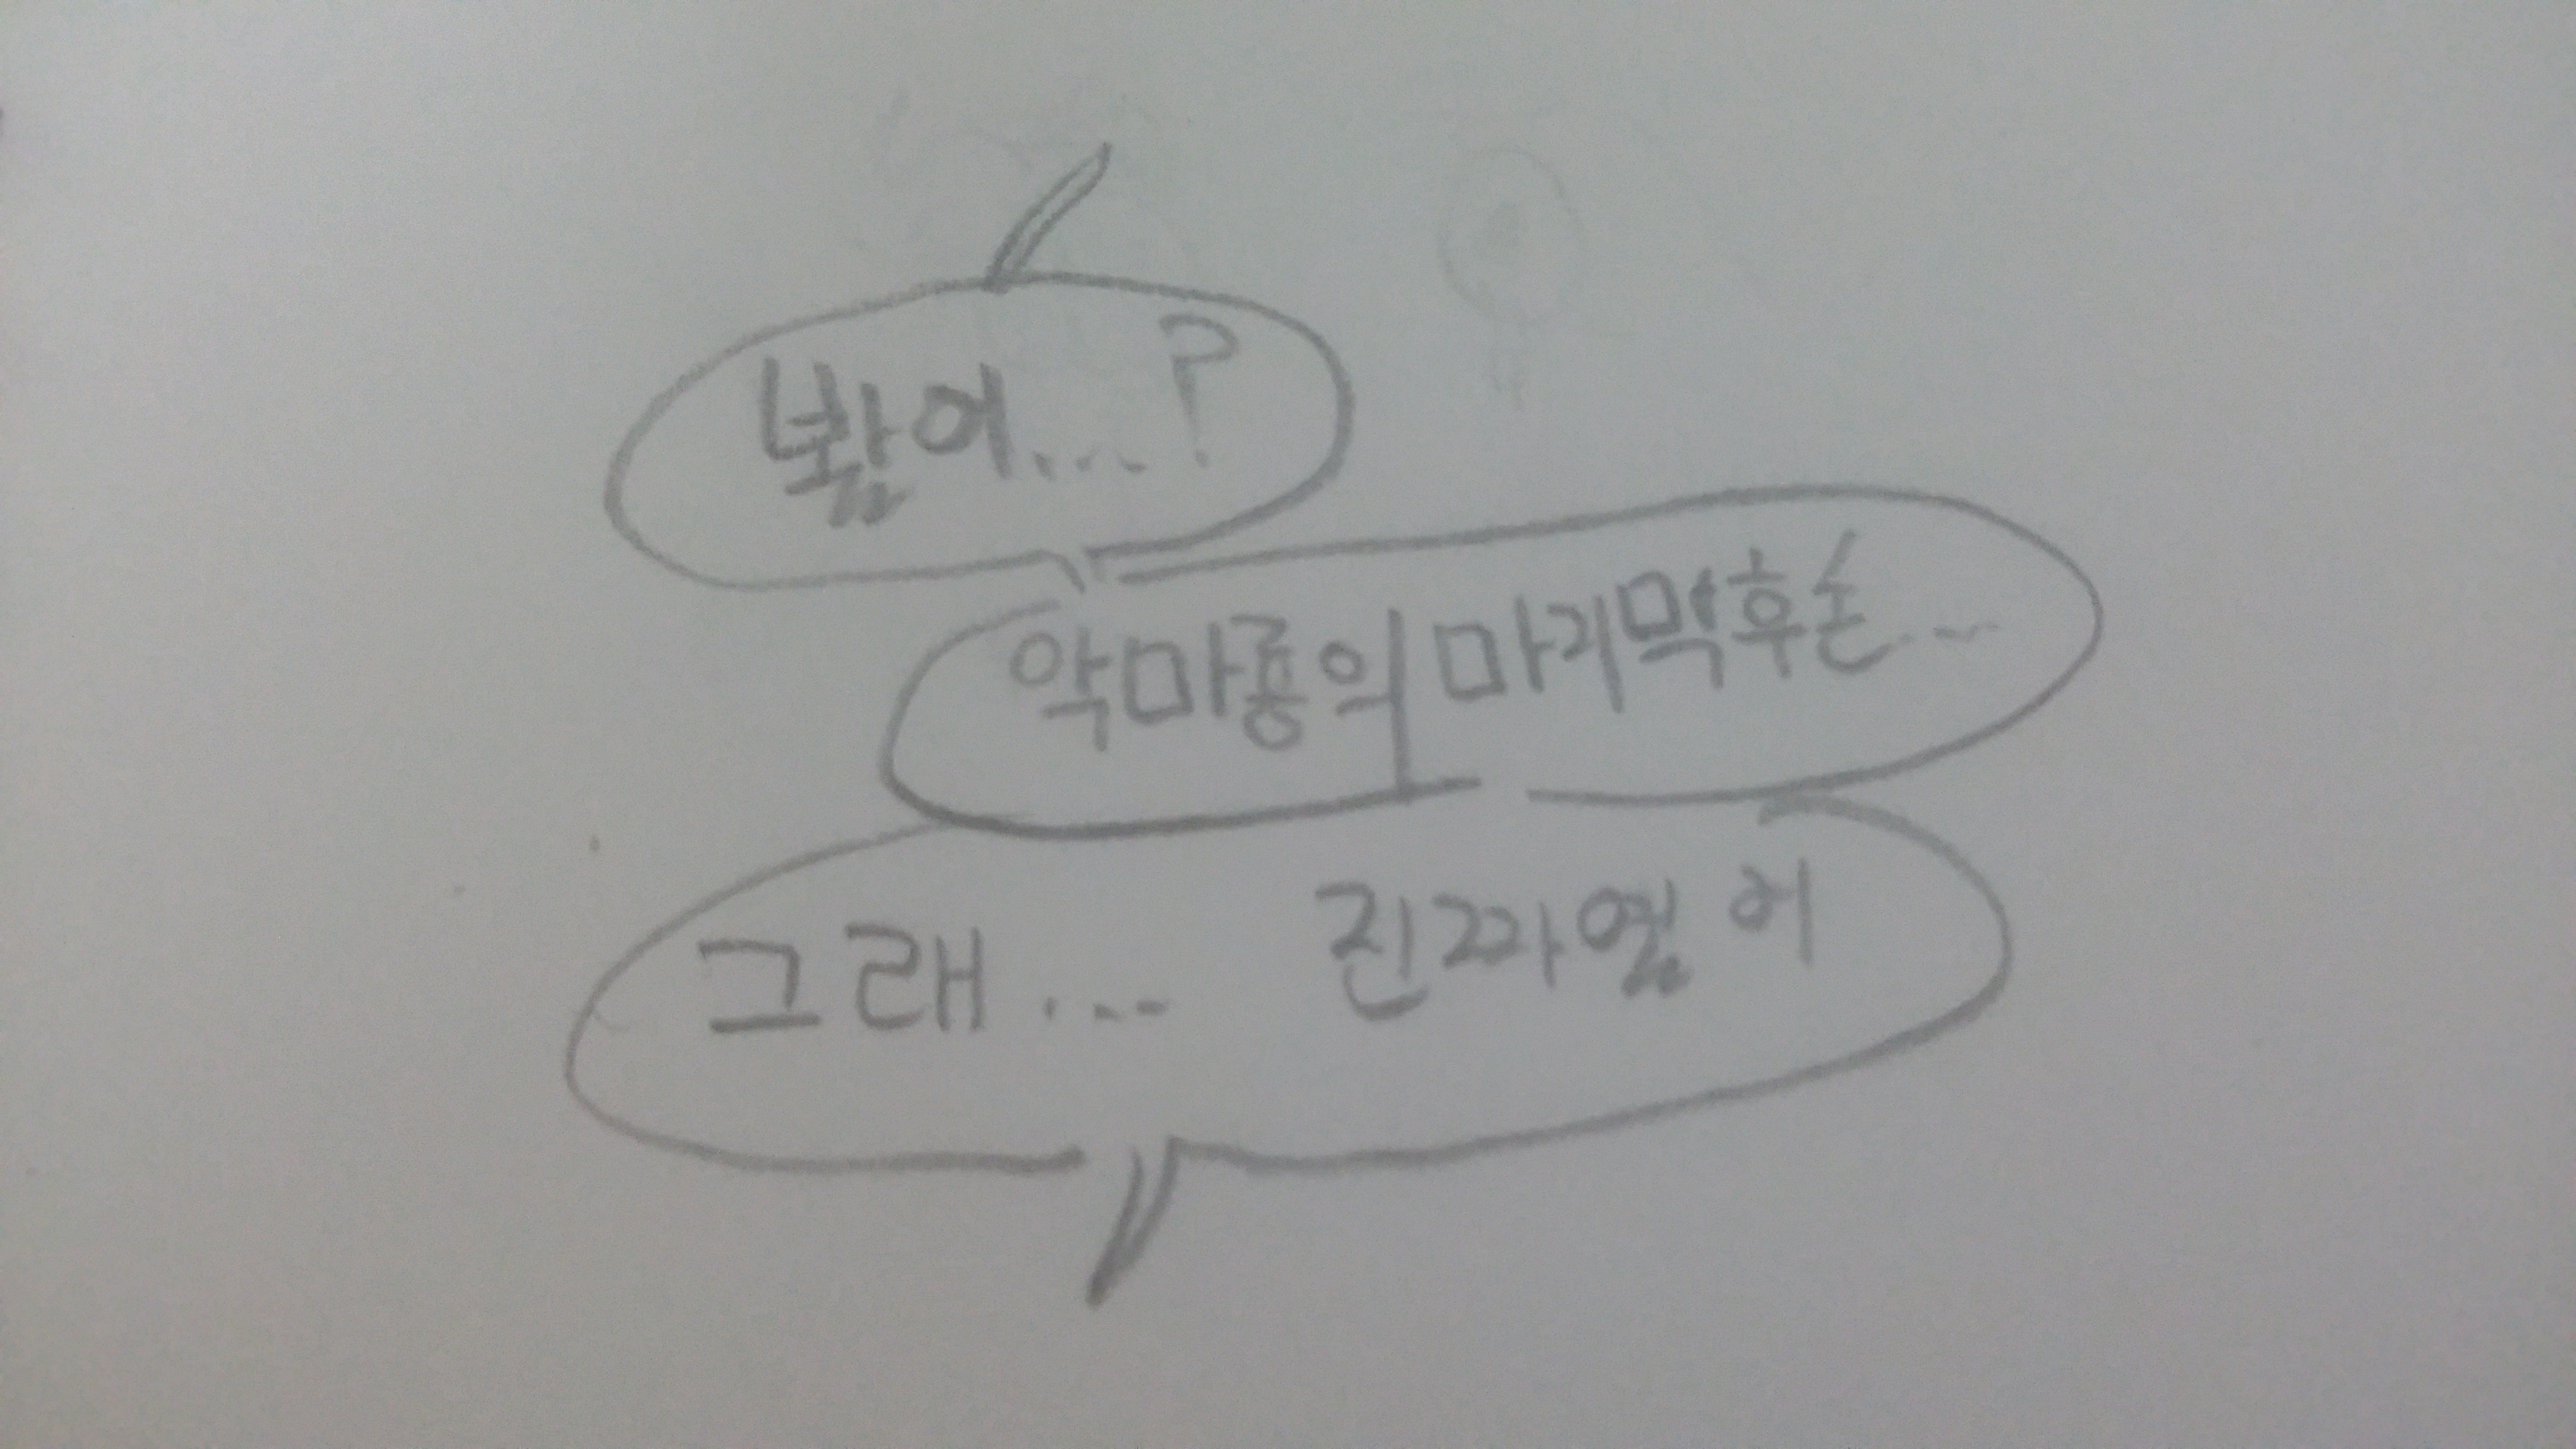 봤어...?
악마룡의 마지막후손...
그래... 진짜였어